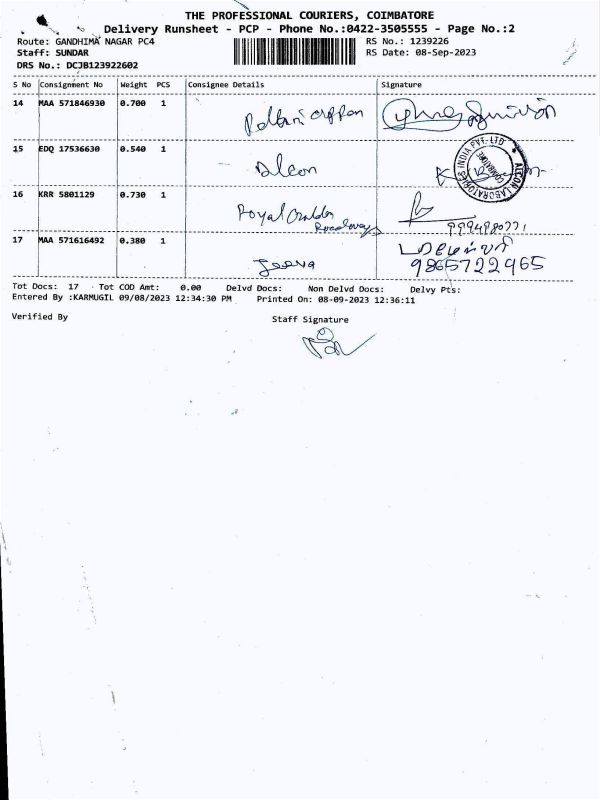 THE PROFESSIONAL COURIERS, COIMBATORE
Delivery Runsheet - PCP - Phone No.:0422-3505555 - Page No.:2
Route: GANDHIMA NAGAR PC4 RS No.: 1239226
Staff: SUNDAR RS Date: 08-Sep-2023
DRS No.: DCJB123922602
S No Consignment No Weight PCS Consignee Details Signature
14 MAA 571846930 0.700 1
15 EDQ 17536630 0.540 1 Alcon
ALCON LABORATORIES INDIA PVT. LTD
COIMBATORE
16 KRR 5801129 0.730 1 Royal
9994980771
17 MAA 571616492 0.380 1 Jeeva
9865722965
Tot Docs: 17 Tot COD Amt: 0.00 Delvd Docs: Non Delvd Docs: Delvy Pts:
Entered By :KARMUGIL 09/08/2023 12:34:30 PM Printed On: 08-09-2023 12:36:11
Verified By Staff Signature